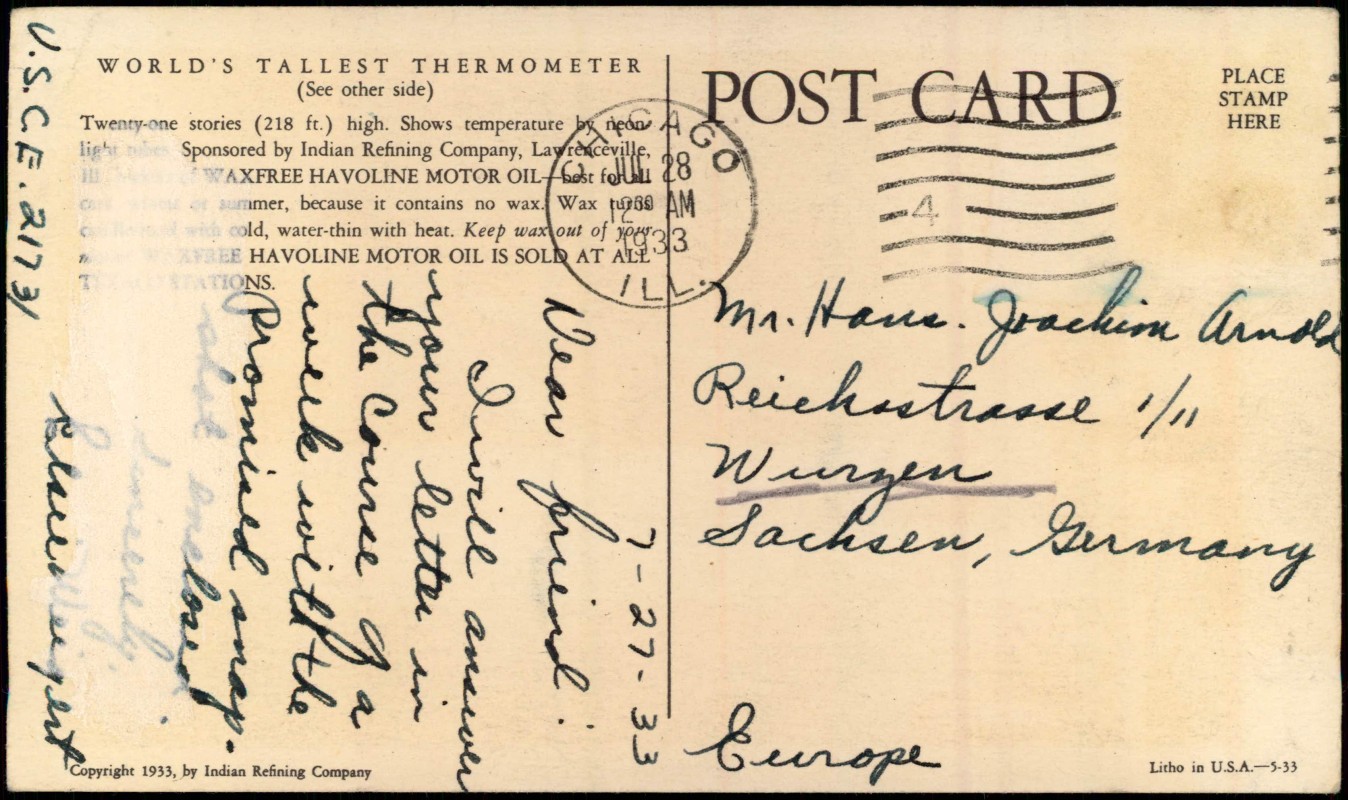 WORLD'S TALLEST THERMOMETER
(See other side)
Twenty-one stories (218 ft.) high. Shows temperature by neon
light tubes Sponsored by Indian Refining Company, Lawrenceville,
Ill. of WAXFREE HAVOLINE MOTOR OIL—best for all
cars winter or summer, because it contains no wax. Wax turns
with cold, water-thin with heat. Keep wax out of your
WAXFREE HAVOLINE MOTOR OIL IS SOLD AT ALL
STATIONS.
7-27-33
Dear friend:
I will answer
your letter in
the course of a
week with the
Promised snap-
shot enclosed
Sincerely,
Weigert
U.S.C.E. 2173/
Copyright 1933, by Indian Refining Company
POST CARD
PLACE
STAMP
HERE
CHICAGO
JUL 28
12 30 AM
1933
ILL.
4
Mr. Hans-Joachim Arnold
Reichsstrasse 1/11
Wurzen
Sachsen, Germany
Europe
Litho in U.S.A.—5-33